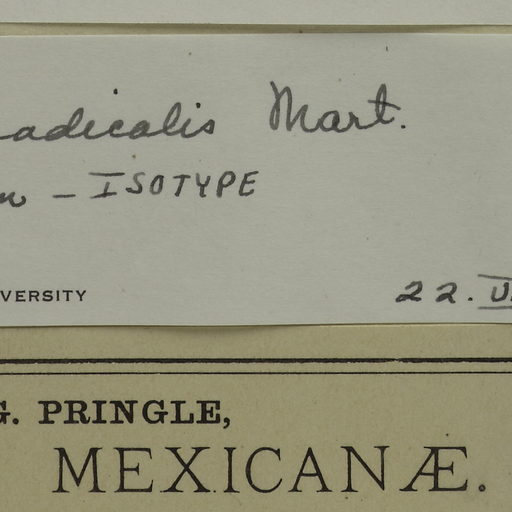 adicalis Mart.
— ISOTYPE
VERSITY
22.
G. PRINGLE,
MEXICANÆ.